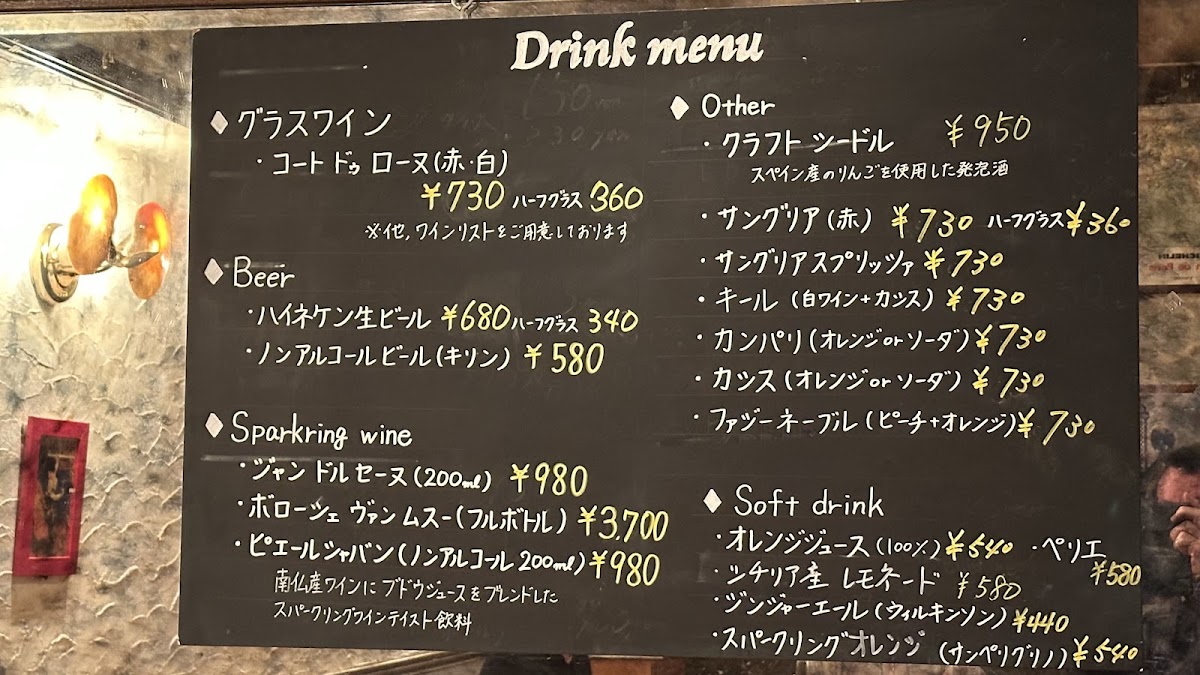 Drink menu
◆ グラスワイン
・コート ドゥ ローヌ(赤・白)
¥730 ハーフグラス 360
※他,ワインリストをご用意しております
◆ Beer
・ハイネケン生ビール ¥680 ハーフグラス 340
・ノンアルコールビール(キリン) ¥580
◆ Sparkring wine
・ジャン ドルセーヌ(200ml) ¥980
・ボローシェ ヴァン ムスー(フルボトル) ¥3,700
・ピエールシャバン(ノンアルコール 200ml) ¥980
南仏産ワインに ブドウジュースをブレンドした
スパークリングワインテイスト飲料
◆ Other
・クラフト シードル ¥950
スペイン産のりんごを使用した発泡酒
・サングリア(赤) ¥730 ハーフグラス ¥360
・サングリアスプリッツァ ¥730
・キール (白ワイン+カシス) ¥730
・カンパリ(オレンジorソーダ) ¥730
・カシス(オレンジorソーダ) ¥730
・ファジーネーブル(ピーチ+オレンジ) ¥730
◆ Soft drink
・オレンジジュース(100%) ¥540 ・ペリエ
¥580
・シチリア産 レモネード ¥580
・ジンジャーエール(ウィルキンソン) ¥440
・スパークリングオレンジ (サンペリグリノ) ¥540